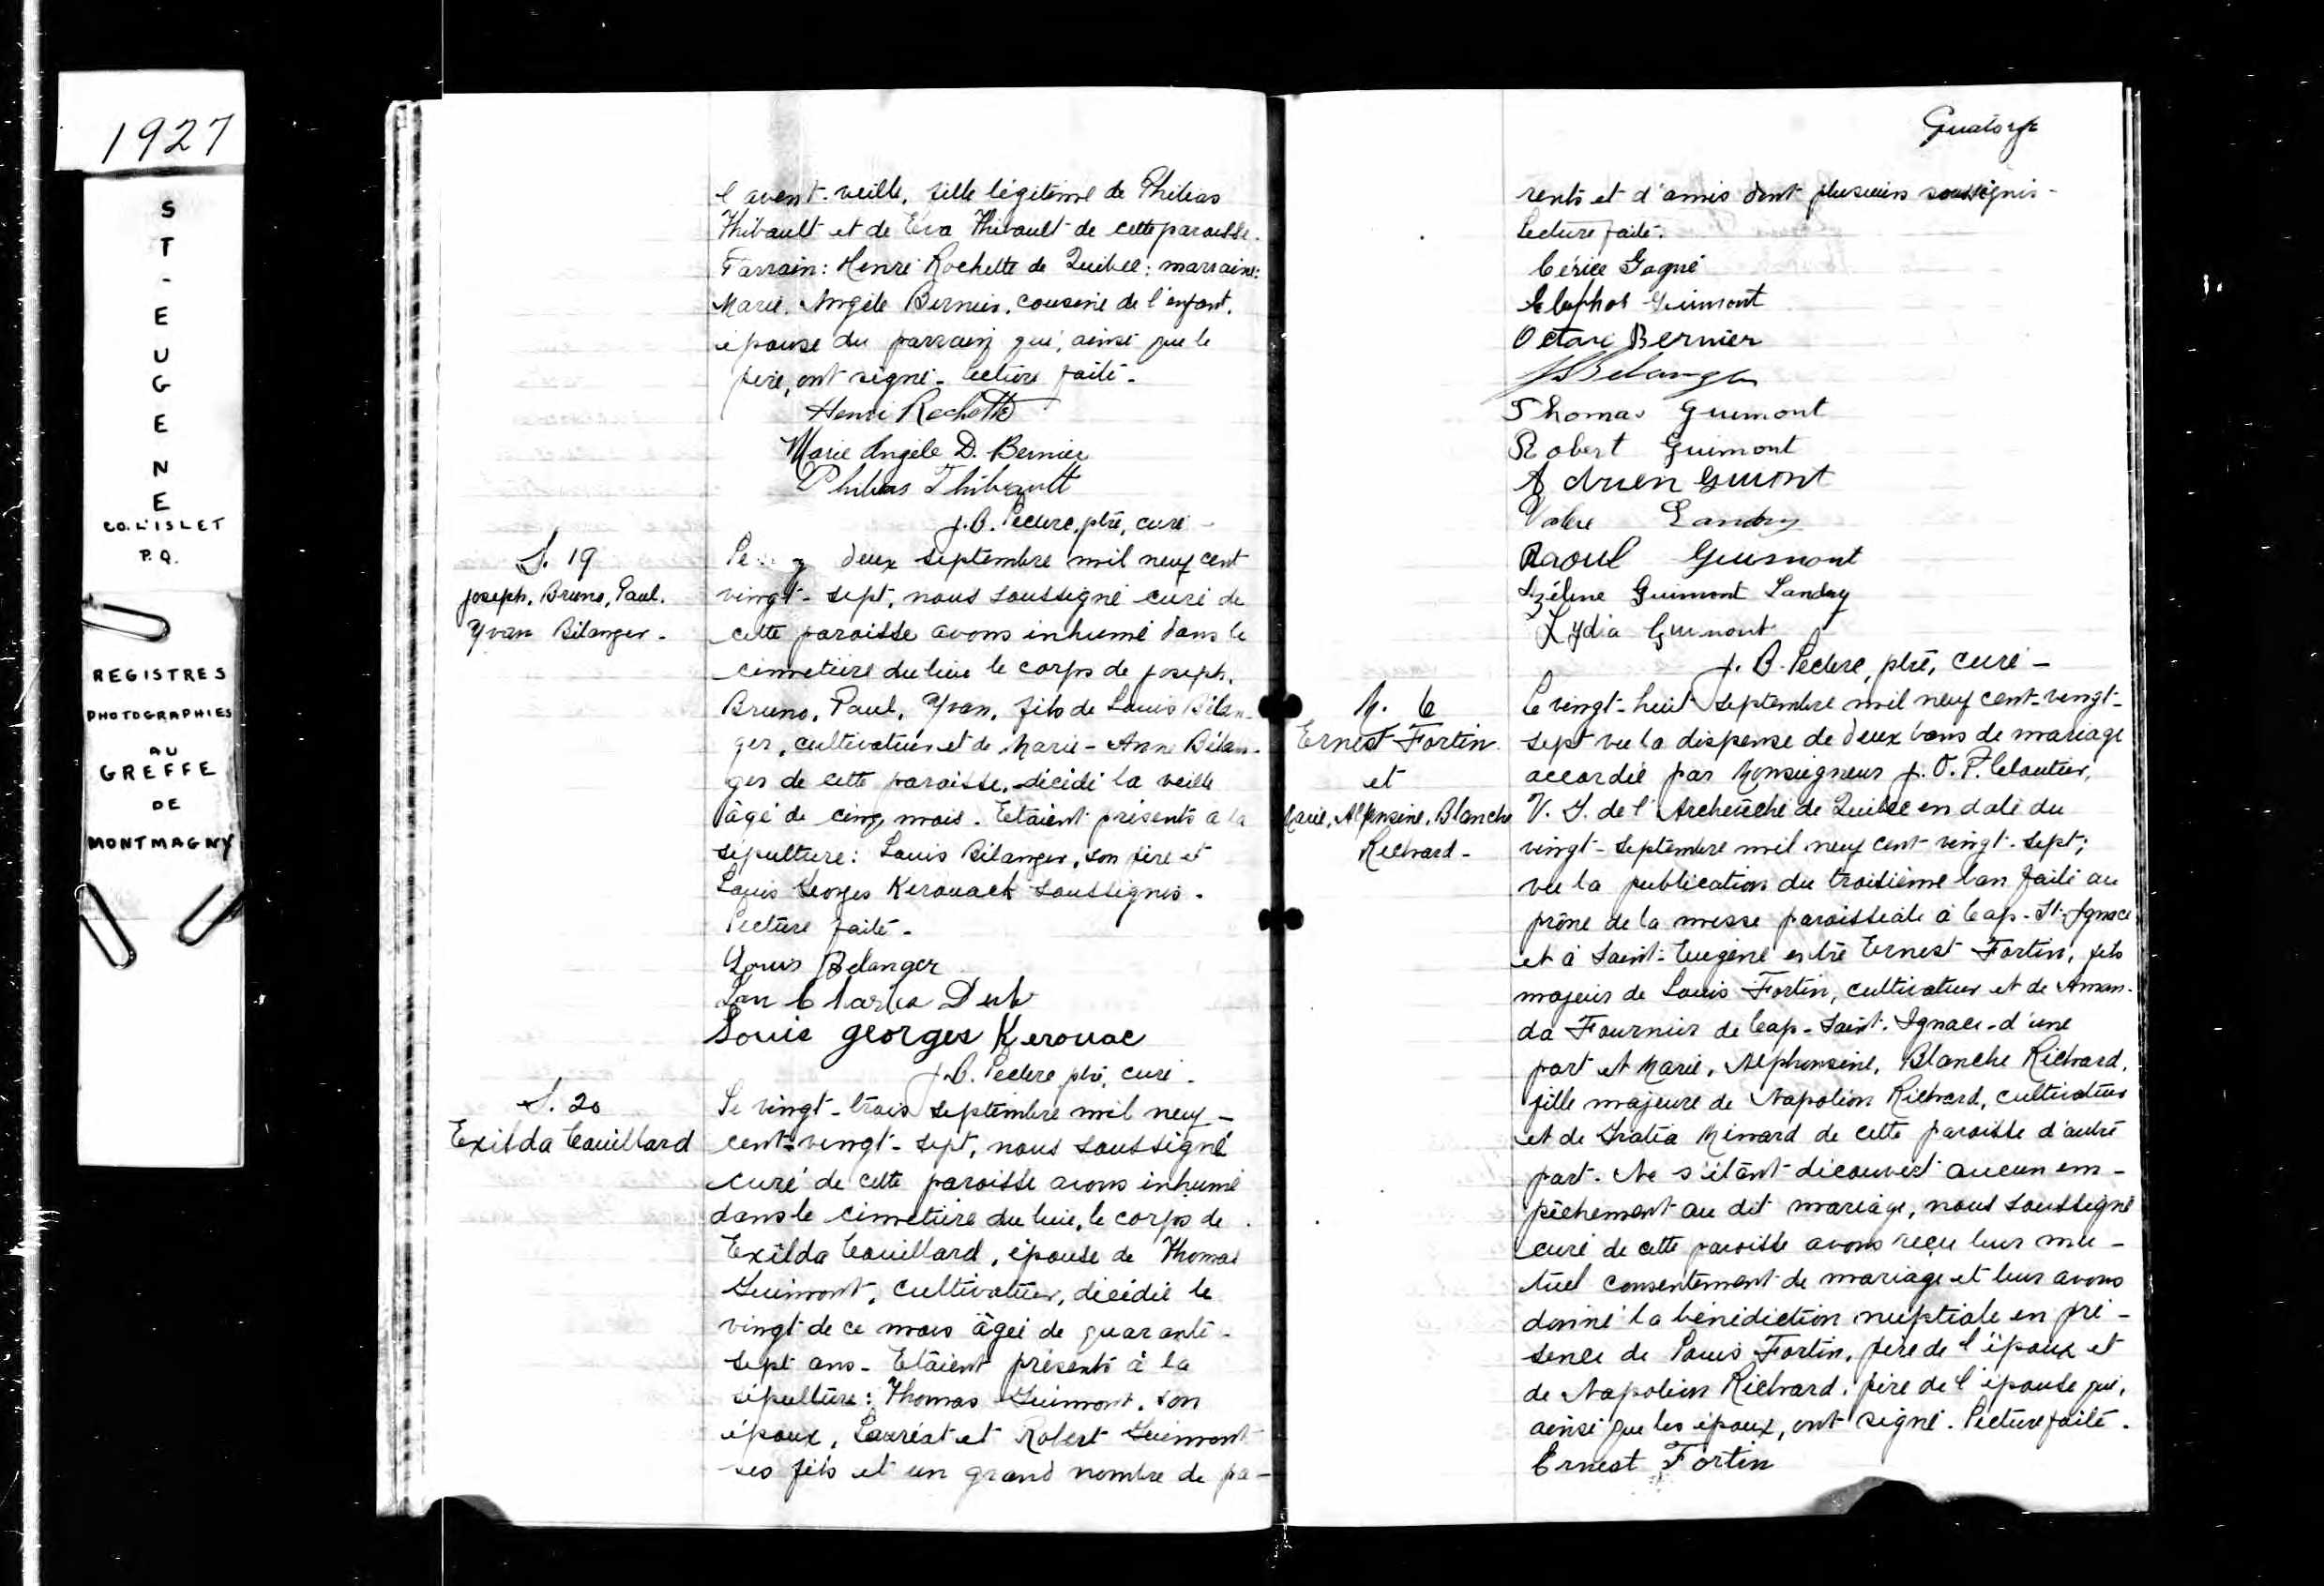 1927
ST-EUGENE
CO. L'ISLET
P.Q.
REGISTRES
PHOTOGRAPHIES
AU
GREFFE
DE
MONTMAGNY
l'avant-veille, fille légitime de Philias
Thibault et de Eva Thibault de cette paroisse.
Parrain: Henri Rochette de Québec; marraine:
Marie, Angèle Bernier, cousine de l'enfant,
épouse du parrain qui, ainsi que le
père, ont signé. Lecture faite.
Henri Rochette
Marie Angèle D. Bernier
Philias Thibault
J.B. Leclerc, ptre, curé
S. 19
Joseph, Bruno, Paul,
Yvan Bélanger.
Le deux septembre mil neuf cent
vingt-sept, nous soussigné curé de
cette paroisse avons inhumé dans le
cimetière du lieu le corps de Joseph,
Bruno, Paul, Yvan, fils de Louis Bélan-
ger, cultivateur et de Marie-Anne Bélan-
ger de cette paroisse, décédé la veille
âgé de cinq mois. Etaient présents à la
sépulture: Louis Bélanger, son père et
Louis Georges Kerouack soussignés.
Lecture faite.
Louis Belanger
Louis georges Kerouac
J.B. Leclerc ptre, curé.
S. 20
Exilda Couillard
Le vingt-trois septembre mil neuf-
cent-vingt-sept, nous soussigné
curé de cette paroisse avons inhumé
dans le cimetière du lieu, le corps de
Exilda Couillard, épouse de Thomas
Guimont, cultivateur, décédée le
vingt de ce mois âgée de quarante-
sept ans. Etaient présents à la
sépulture: Thomas Guimont, son
époux, Lauréat et Robert Guimont
ses fils et un grand nombre de pa-
Quatorze
rents et d'amis dont plusieurs soussignés.
Lecture faite.
Gagné
Guimont
Octave Bernier
Belanger
Thomas Guimont
Robert Guimont
Adrien Guimont
Landry
Raoul Guimont
Zéline Guimont Landry
Lydia Guimont
J.B. Leclerc, ptre, curé
M. 6
Ernest Fortin
et
Marie, Alphonsine, Blanche
Richard.
Le vingt-huit septembre mil neuf cent-vingt-
sept vu la dispense de deux bans de mariage
accordée par Monseigneur J.O.P. Cloutier,
V. G. de l'Archevêché de Québec en date du
vingt-septembre mil neuf cent vingt-sept;
vu la publication du troisième ban faite au
prône de la messe paroissiale à Cap-St-Ignace
et à Saint-Eugène entre Ernest Fortin, fils
majeur de Louis Fortin, cultivateur et de Aman-
da Fournier de Cap-Saint-Ignace d'une
part et Marie, Alphonsine, Blanche Richard,
fille majeure de Napoléon Richard, cultivateur
et de Gratia Minard de cette paroisse d'autre
part. Ne s'étant découvert aucun em-
pêchement au dit mariage, nous soussigné
curé de cette paroisse avons reçu leur mu-
tuel consentement de mariage et leur avons
donné la bénédiction nuptiale en pré-
sence de Louis Fortin, père de l'époux et
de Napoléon Richard, père de l'épouse qui,
ainsi que les époux, ont signé. Lecture faite.
Ernest Fortin